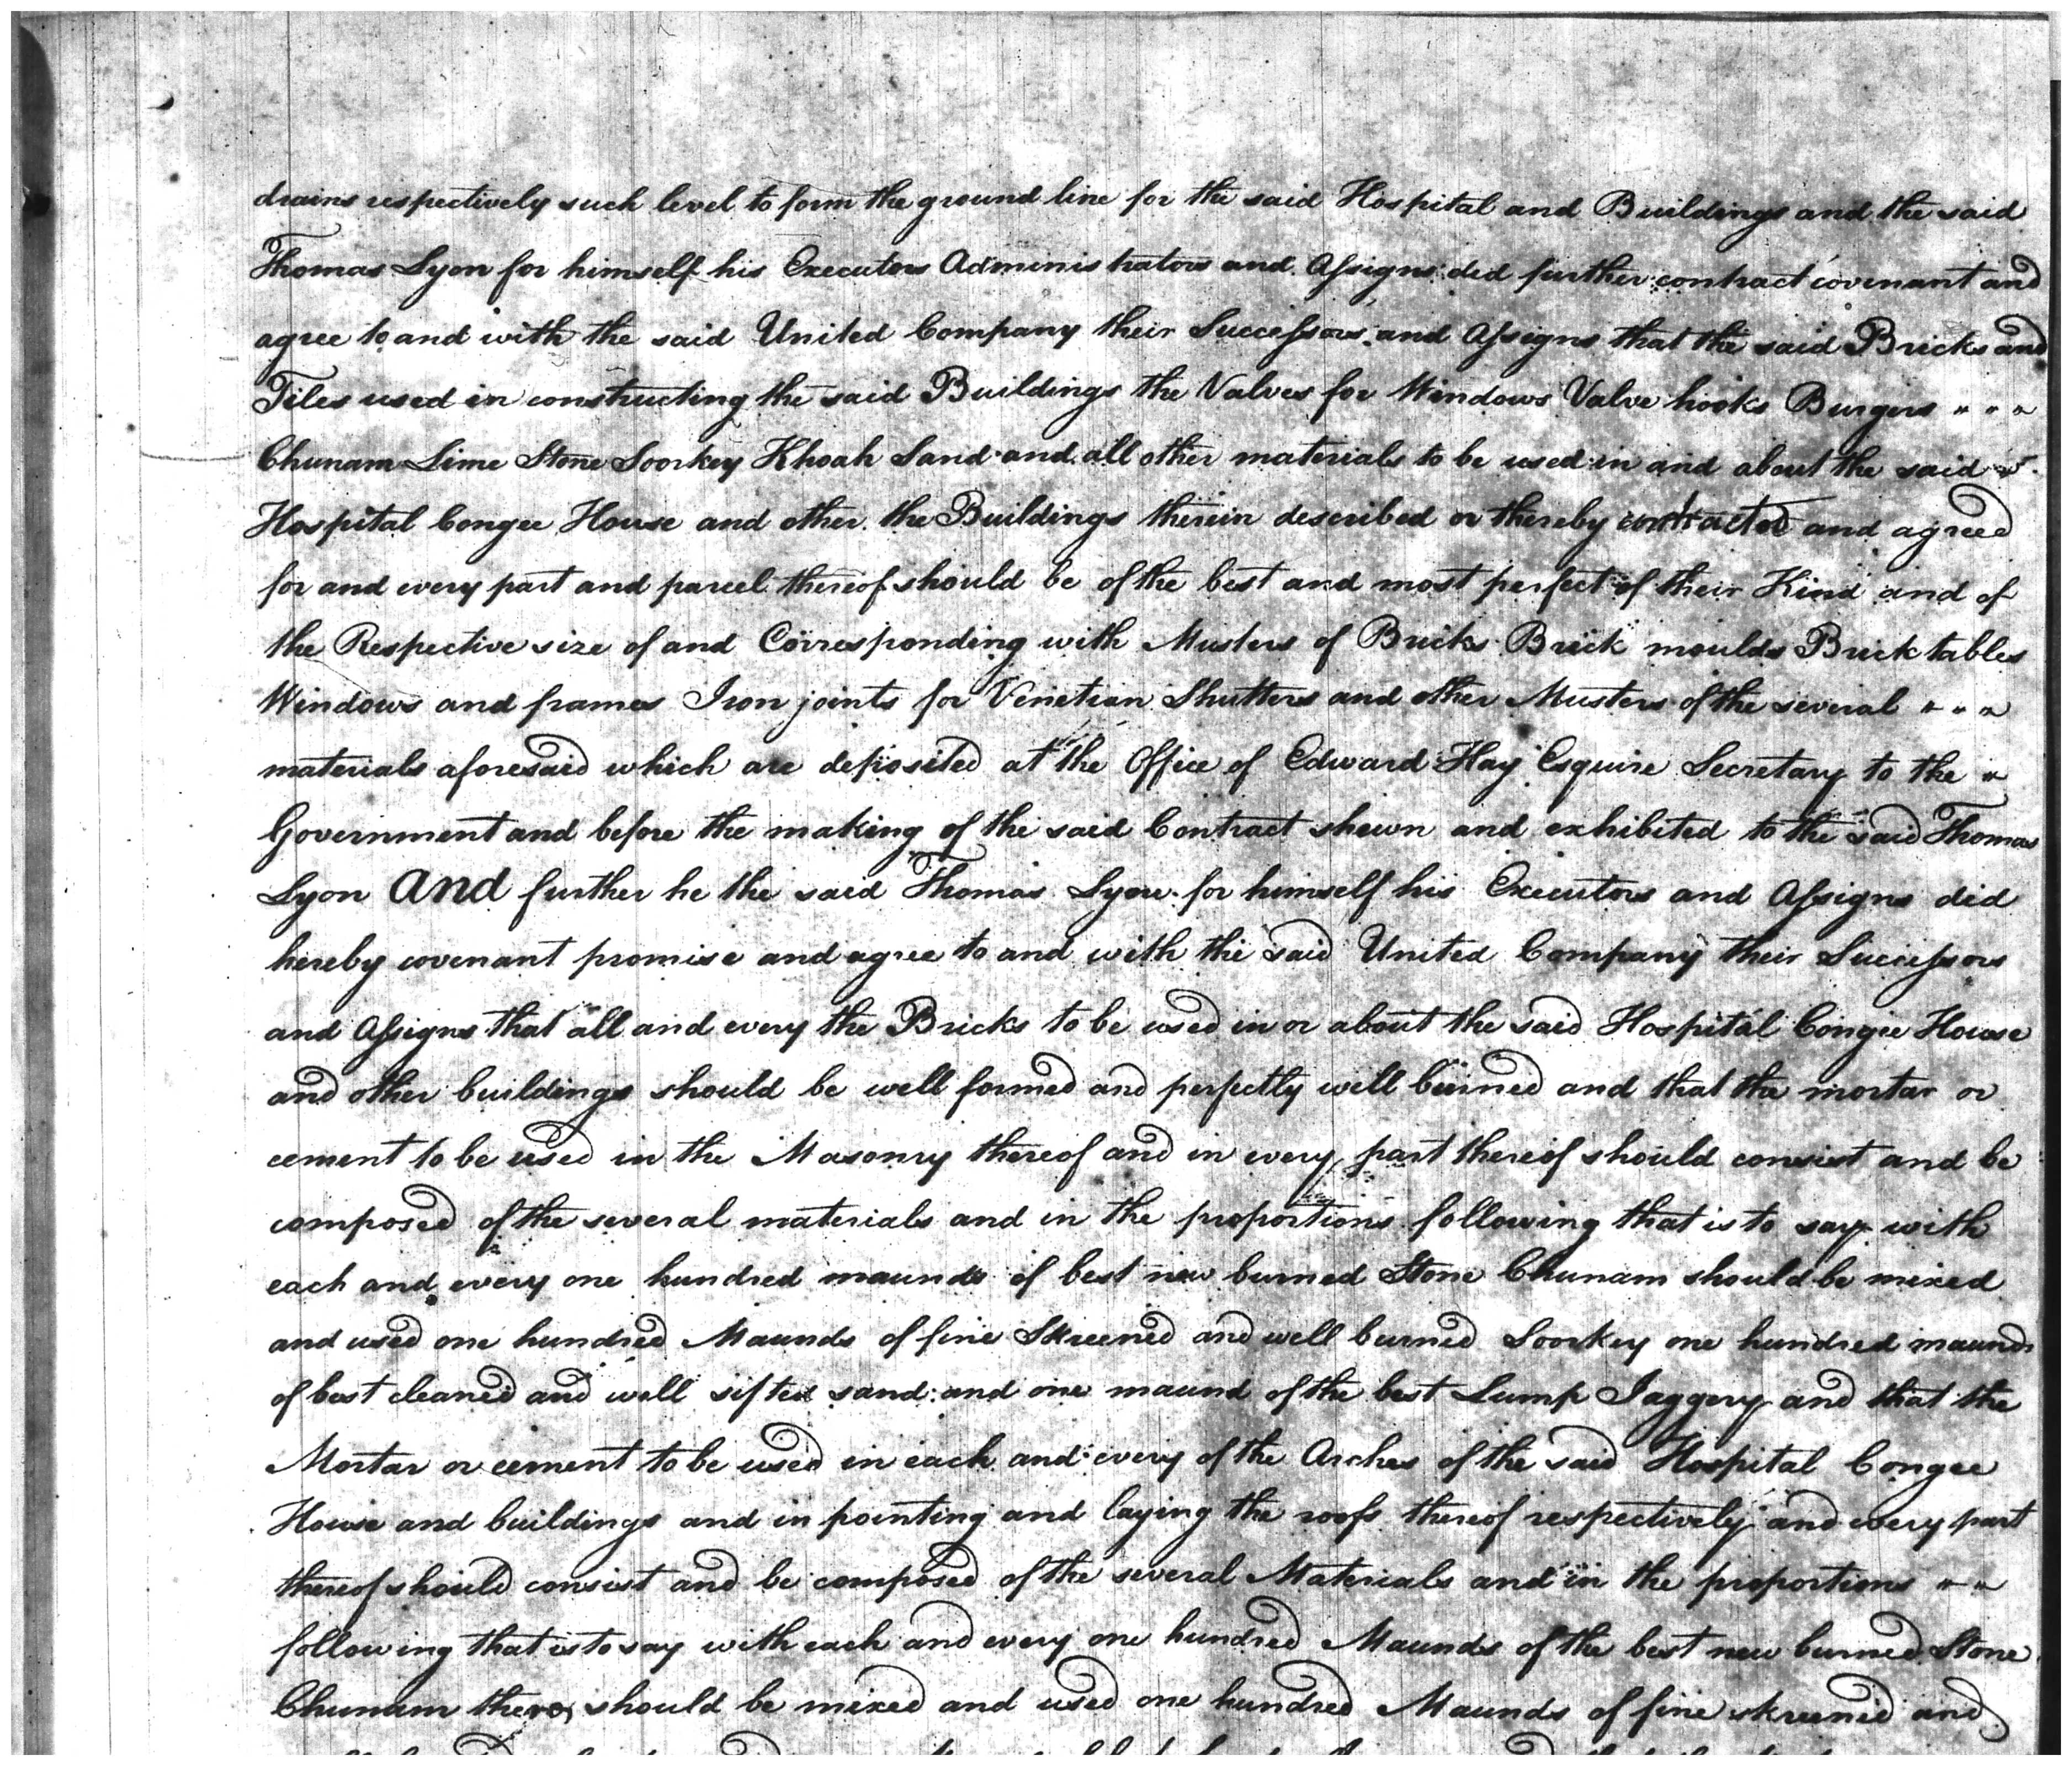 drains respectively such level to form the ground line for the said Hospital and Buildings and the said
Thomas Lyon for himself his Executors Administrators and Assigns did further contract covenant and
agree to and with the said United Company their Successors and Assigns that the said Bricks and
Tiles used in constructing the said Buildings the Valves for Windows Valve hooks Burgers " " "
Chunam Lime Stone Soorkey Khoah Sand and all other materials to be used in and about the said "
Hospital Congee House and other the Buildings therein described or thereby contracted and agreed
for and every part and parcel thereof should be of the best and most perfect of their Kind and of
the Respective size of and Corresponding with Musters of Bricks Brick moulds Brick tables
Windows and frames Iron joints for Venetian Shutters and other Musters of the several " " "
materials aforesaid which are deposited at the Office of Edward Hay Esquire Secretary to the "
Government and before the making of the said Contract shewn and exhibited to the said Thomas
Lyon And further he the said Thomas Lyon for himself his Executors and Assigns did
hereby covenant promise and agree to and with the said United Company their Successors
and Assigns that all and every the Bricks to be used in or about the said Hospital Congie House
and other buildings should be well formed and perfectly well burned and that the mortar or
cement to be used in the Masonry thereof and in every part thereof should consist and be
composed of the several materials and in the proportions following that is to say with
each and every one hundred maunds of best new burned Stone Chunam should be mixed
and used one hundred Maunds of fine Skreened and well burned Soorkey one hundred maunds
of best cleaned and well sifted sand and one maund of the best Lump Jaggery and that the
Mortar or cement to be used in each and every of the Arches of the said Hospital Congee
House and buildings and in pointing and laying the roofs thereof respectively and every part
thereof should consist and be composed of the several Materials and in the proportions " "
following that is to say with each and every one hundred Maunds of the best new burned Stone
Chunam there should be mixed and used one hundred Maunds of fine skreened and